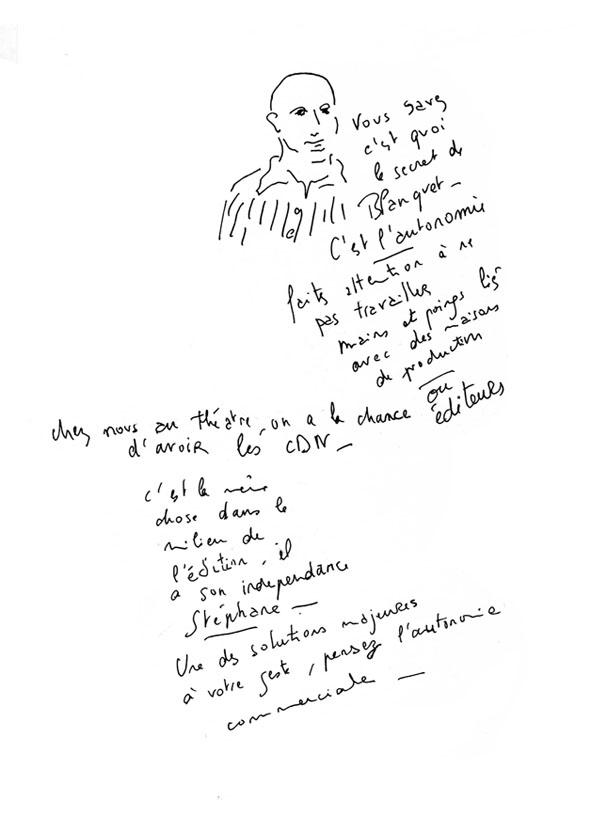 Vous savez
c'est quoi
le secret de
Blanquet _
C'est l'autonomie
faites attention à ne
pas travailler
mains et poings liés
avec des maisons
de production
ou
éditeurs
chez nous au théâtre, on a la chance
d'avoir les CDN _
c'est la même
chose dans le
milieu de
l'édition, il
a son independance
Stéphane _
Une des solutions majeures
à votre geste, pensez l'autonomie
commerciale _